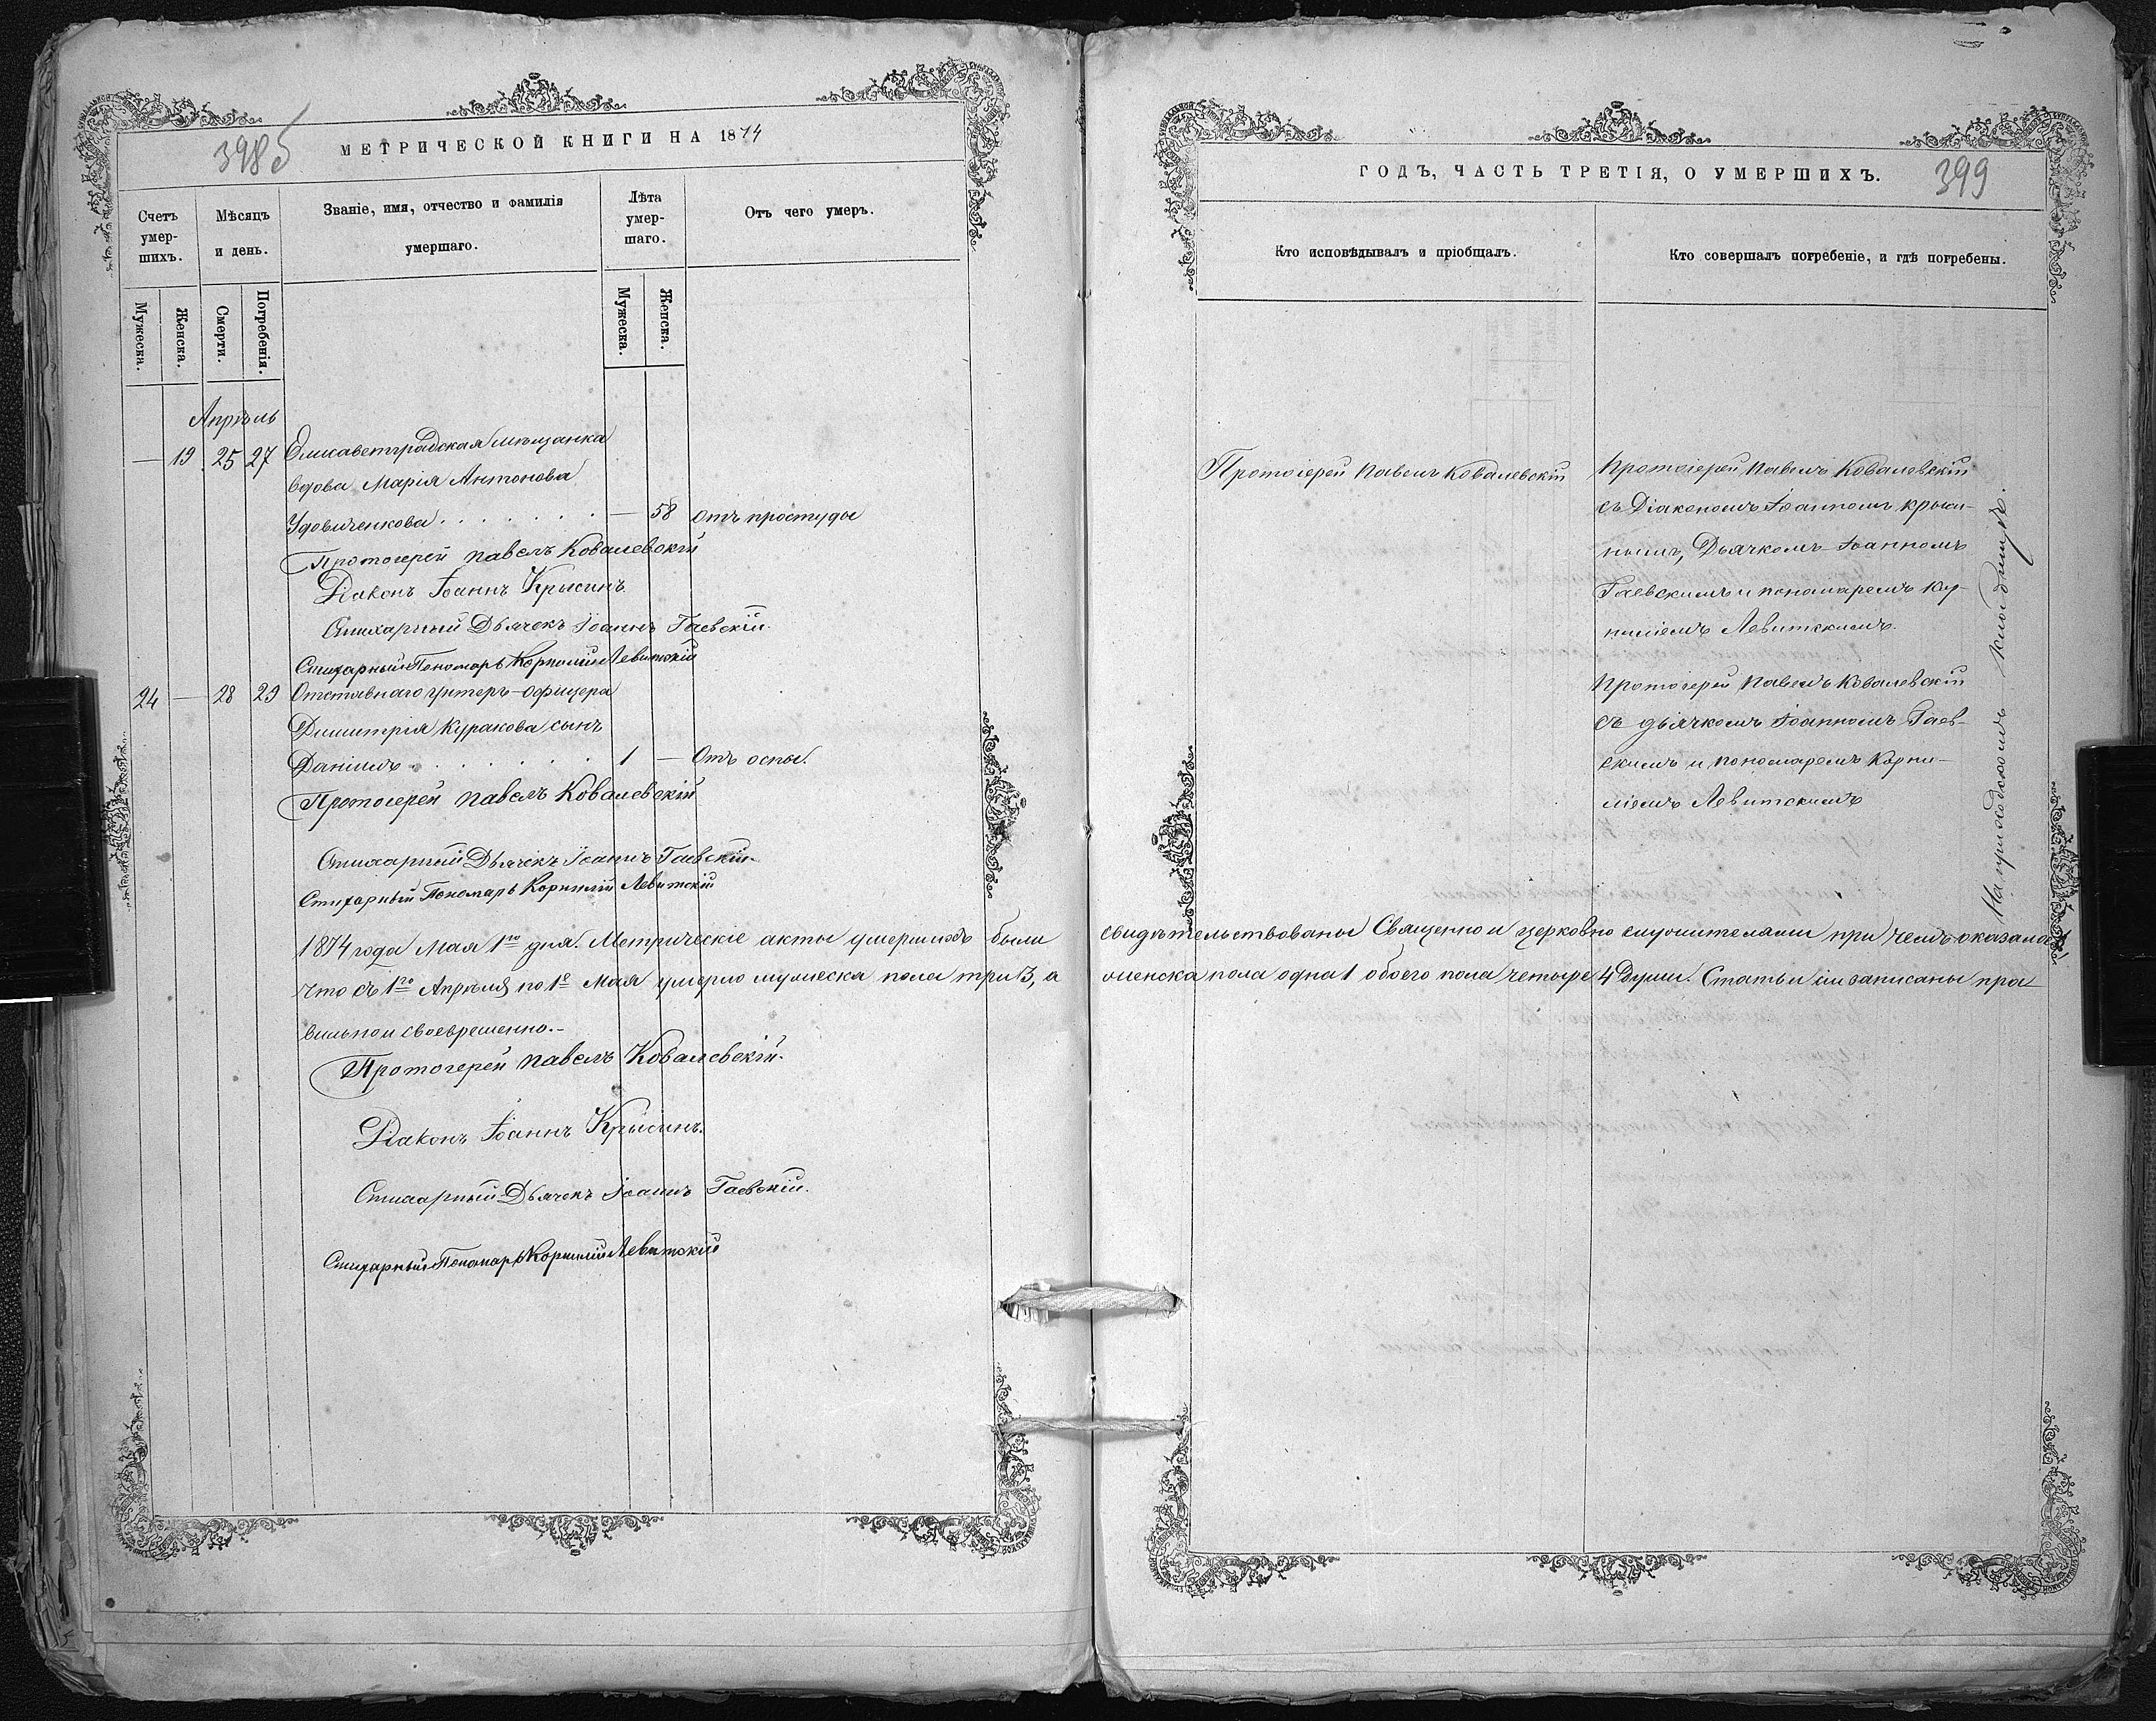 398б
МЕТРИЧЕСКОЙ КНИГИ НА 1874
Счетъ умер-шихъ.
Мѣсяцъ и день.
Званіе, имя, отчество и фамилія умершаго.
Лѣта умер-шаго.
Отъ чего умеръ.
Мужеска.
Женска.
Смерти.
Погребенія.
Мужеска.
Женска.
Апрѣль
— 19 25 27 Елисаветградская мѣщанка
вдова Марія Антонова
Удовиченкова . . . . . . . — 58 Отъ простуды
Протоіерей Павелъ Ковалевскій
Діаконъ Іоаннъ Крысинъ.
Стихарный Дьячекъ Іоаннъ Гаевскій.
Стихарный Пономарь Корнилій Левитскій
24 — 28 29 Отставнаго унтеръ-офицера
Димитрія Куракова сынъ
Даніилъ . . . . . . . 1 — Отъ оспы.
Протоіерей Павелъ Ковалевскій
Стихарный Дьячекъ Іоаннъ Гаевскій.
Стихарный Пономарь Корнилій Левитскій
1874 года Мая 1го дня. Метрическіе акты умершихъ были
что съ 1го Апрѣля по 1е Мая умерло мужеска пола три 3, а
вильно и своевременно.-
Протоіерей Павелъ Ковалевскій.
Діаконъ Іоаннъ Крысинъ.
Стихарный Дьячекъ Іоаннъ Гаевскій.
Стихарный Пономарь Корнилій Левитскій
ГОДЪ, ЧАСТЬ ТРЕТІЯ, О УМЕРШИХЪ.
399
Кто исповѣдывалъ и пріобщалъ.
Кто совершалъ погребеніе, и гдѣ погребены.
Протоіерей Павелъ Ковалевскій
Протоіерей Павелъ Ковалевскій
съ Діакономъ Іоанномъ Крыси-
нымъ, Дьячкомъ Іоанномъ
Гаевскимъ и пономаремъ Кор-
ниліемъ Левитскимъ.
Протоіерей Павелъ Ковалевскій
съ дьячкомъ Іоанномъ Гаев-
скимъ и пономаремъ Корни-
ліемъ Левитскимъ
На приходскомъ кладбищѣ.
свидѣтельствованы Священно и церковно служителями при чемъ оказалось
женска пола одна 1 обоего пола четыре 4 Души. Статьи сіи записаны пра-